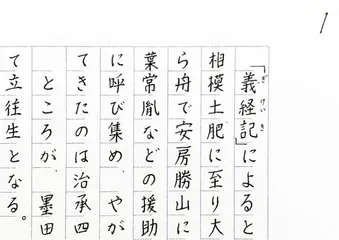 1
「義経記」によると
ぎけいき
相模土肥に至り大
ら舟で安房勝山に
葉常胤などの援助
に呼び集め やが
てきたのは治承四
ところが 墨田
て立往生となる。